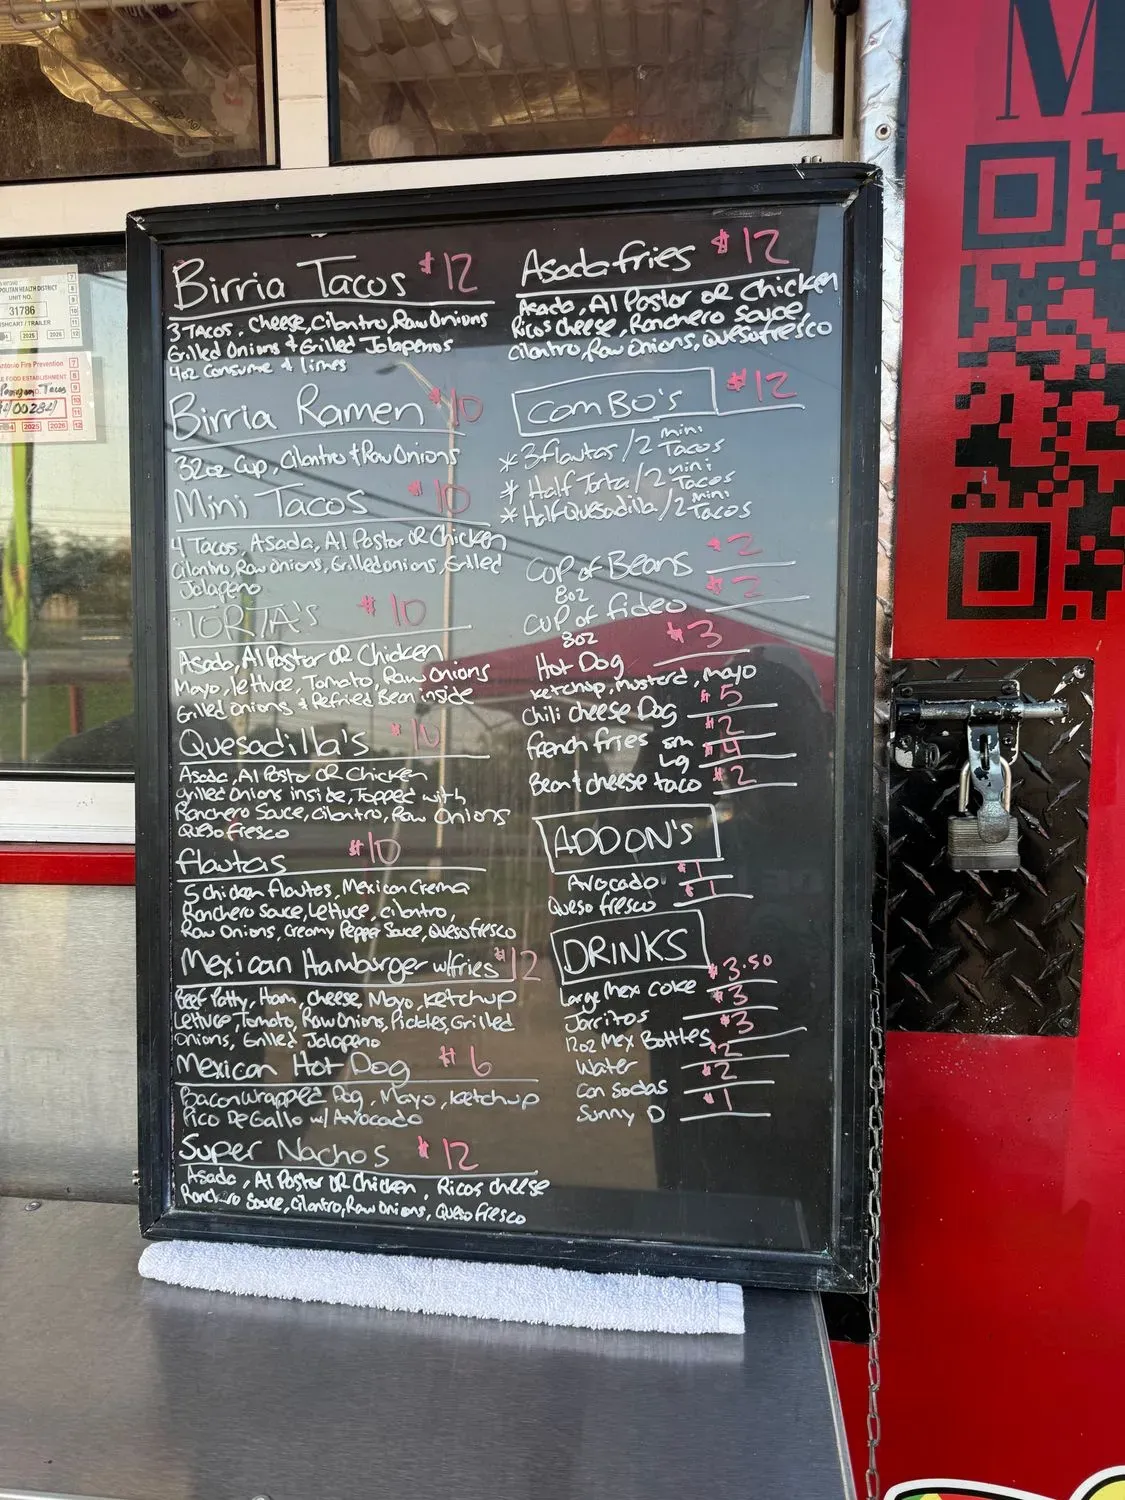 M
POLITAN HEALTH DISTRICT
UNIT NO.
31786
SHCART / TRAILER
2025 2026
Antonio Fire Prevention
E FOOD ESTABLISHMENT
Tacos
2025 2026
Birria Tacos $12
3 Tacos, Cheese, Cilantro, Raw Onions
Grilled Onions & Grilled Jalapenos
4oz Consume & limes
Birria Ramen $10
32oz Cup, Cilantro & Raw Onions
Mini Tacos $10
4 Tacos, Asada, Al Pastor OR Chicken
Cilantro, Raw Onions, Grilled onions, Grilled
Jalapeno
TORTA'S $10
Asada, Al Pastor OR Chicken
Mayo, lettuce, Tomato, Raw Onions
Grilled onions & Refried Bean inside
Quesadilla's $10
Asada, Al Pastor OR Chicken
Grilled Onions inside, Topped with
Ranchero Sauce, Cilantro, Raw Onions
Queso fresco
flautas $10
5 chicken flautas, Mexican Crema
Ranchero sauce, Lettuce, cilantro,
Raw Onions, Creamy Pepper Sauce, Queso fresco
Mexican Hamburger w/fries $12
Beef Patty, Ham, cheese, Mayo, Ketchup
Lettuce, Tomato, Raw Onions, Pickles, Grilled
Onions, Grilled Jalapeno
Mexican Hot Dog $6
Bacon wrapped Dog, Mayo, Ketchup
Pico De Gallo w/ Avocado
Super Nachos $12
Asada, Al Pastor OR Chicken, Ricos cheese
Ranchero Sauce, Cilantro, Raw Onions, Queso fresco
Asada fries $12
Asada, Al Pastor OR Chicken
Ricos Cheese, Ranchero Sauce,
Cilantro, Raw Onions, Queso fresco
ComBO's $12
* 3 flautas / 2 mini Tacos
* Half Torta / 2 mini Tacos
* Half Quesadilla / 2 mini Tacos
Cup of Beans $2
8oz
Cup of fideo $2
8oz
Hot Dog $3
Ketchup, Mustard, Mayo
Chili cheese Dog $5
french fries sm $2
Lg $4
Bean & cheese taco $2
ADDON'S
Avocado $1
Queso fresco $1
DRINKS
Large Mex Coke $3.50
Jarritos $3
12oz Mex Bottles $3
Water $2
Can Sodas $2
Sunny D $1